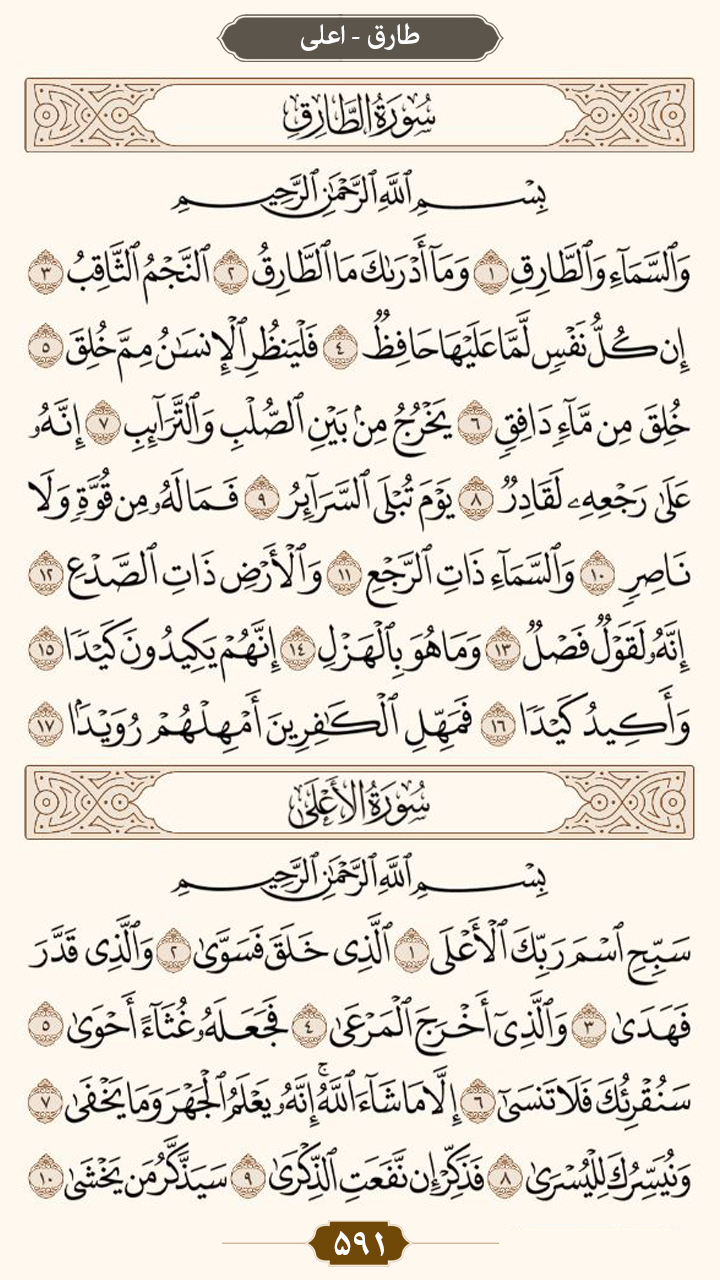 طارق - اعلی
سُورَةُ الطَّارِقِ
بِسْمِ ٱللَّهِ ٱلرَّحْمَٰنِ ٱلرَّحِيمِ
وَٱلسَّمَآءِ وَٱلطَّارِقِ ١ وَمَآ أَدْرَىٰكَ مَا ٱلطَّارِقُ ٢ ٱلنَّجْمُ ٱلثَّاقِبُ ٣
إِن كُلُّ نَفْسٍ لَّمَّا عَلَيْهَا حَافِظٌ ٤ فَلْيَنظُرِ ٱلْإِنسَٰنُ مِمَّ خُلِقَ ٥
خُلِقَ مِن مَّآءٍ دَافِقٍ ٦ يَخْرُجُ مِنۢ بَيْنِ ٱلصُّلْبِ وَٱلتَّرَآئِبِ ٧ إِنَّهُۥ
عَلَىٰ رَجْعِهِۦ لَقَادِرٌ ٨ يَوْمَ تُبْلَى ٱلسَّرَآئِرُ ٩ فَمَا لَهُۥ مِن قُوَّةٍ وَلَا
نَاصِرٍ ١٠ وَٱلسَّمَآءِ ذَاتِ ٱلرَّجْعِ ١١ وَٱلْأَرْضِ ذَاتِ ٱلصَّدْعِ ١٢
إِنَّهُۥ لَقَوْلٌ فَصْلٌ ١٣ وَمَا هُوَ بِٱلْهَزْلِ ١٤ إِنَّهُمْ يَكِيدُونَ كَيْدًا ١٥
وَأَكِيدُ كَيْدًا ١٦ فَمَهِّلِ ٱلْكَٰفِرِينَ أَمْهِلْهُمْ رُوَيْدًۢا ١٧
سُورَةُ الأَعْلَىٰ
بِسْمِ ٱللَّهِ ٱلرَّحْمَٰنِ ٱلرَّحِيمِ
سَبِّحِ ٱسْمَ رَبِّكَ ٱلْأَعْلَى ١ ٱلَّذِى خَلَقَ فَسَوَّىٰ ٢ وَٱلَّذِى قَدَّرَ
فَهَدَىٰ ٣ وَٱلَّذِىٓ أَخْرَجَ ٱلْمَرْعَىٰ ٤ فَجَعَلَهُۥ غُثَآءً أَحْوَىٰ ٥
سَنُقْرِئُكَ فَلَا تَنسَىٰٓ ٦ إِلَّا مَا شَآءَ ٱللَّهُ ۚ إِنَّهُۥ يَعْلَمُ ٱلْجَهْرَ وَمَا يَخْفَىٰ ٧
وَنُيَسِّرُكَ لِلْيُسْرَىٰ ٨ فَذَكِّرْ إِن نَّفَعَتِ ٱلذِّكْرَىٰ ٩ سَيَذَّكَّرُ مَن يَخْشَىٰ ١٠
۵۹۱